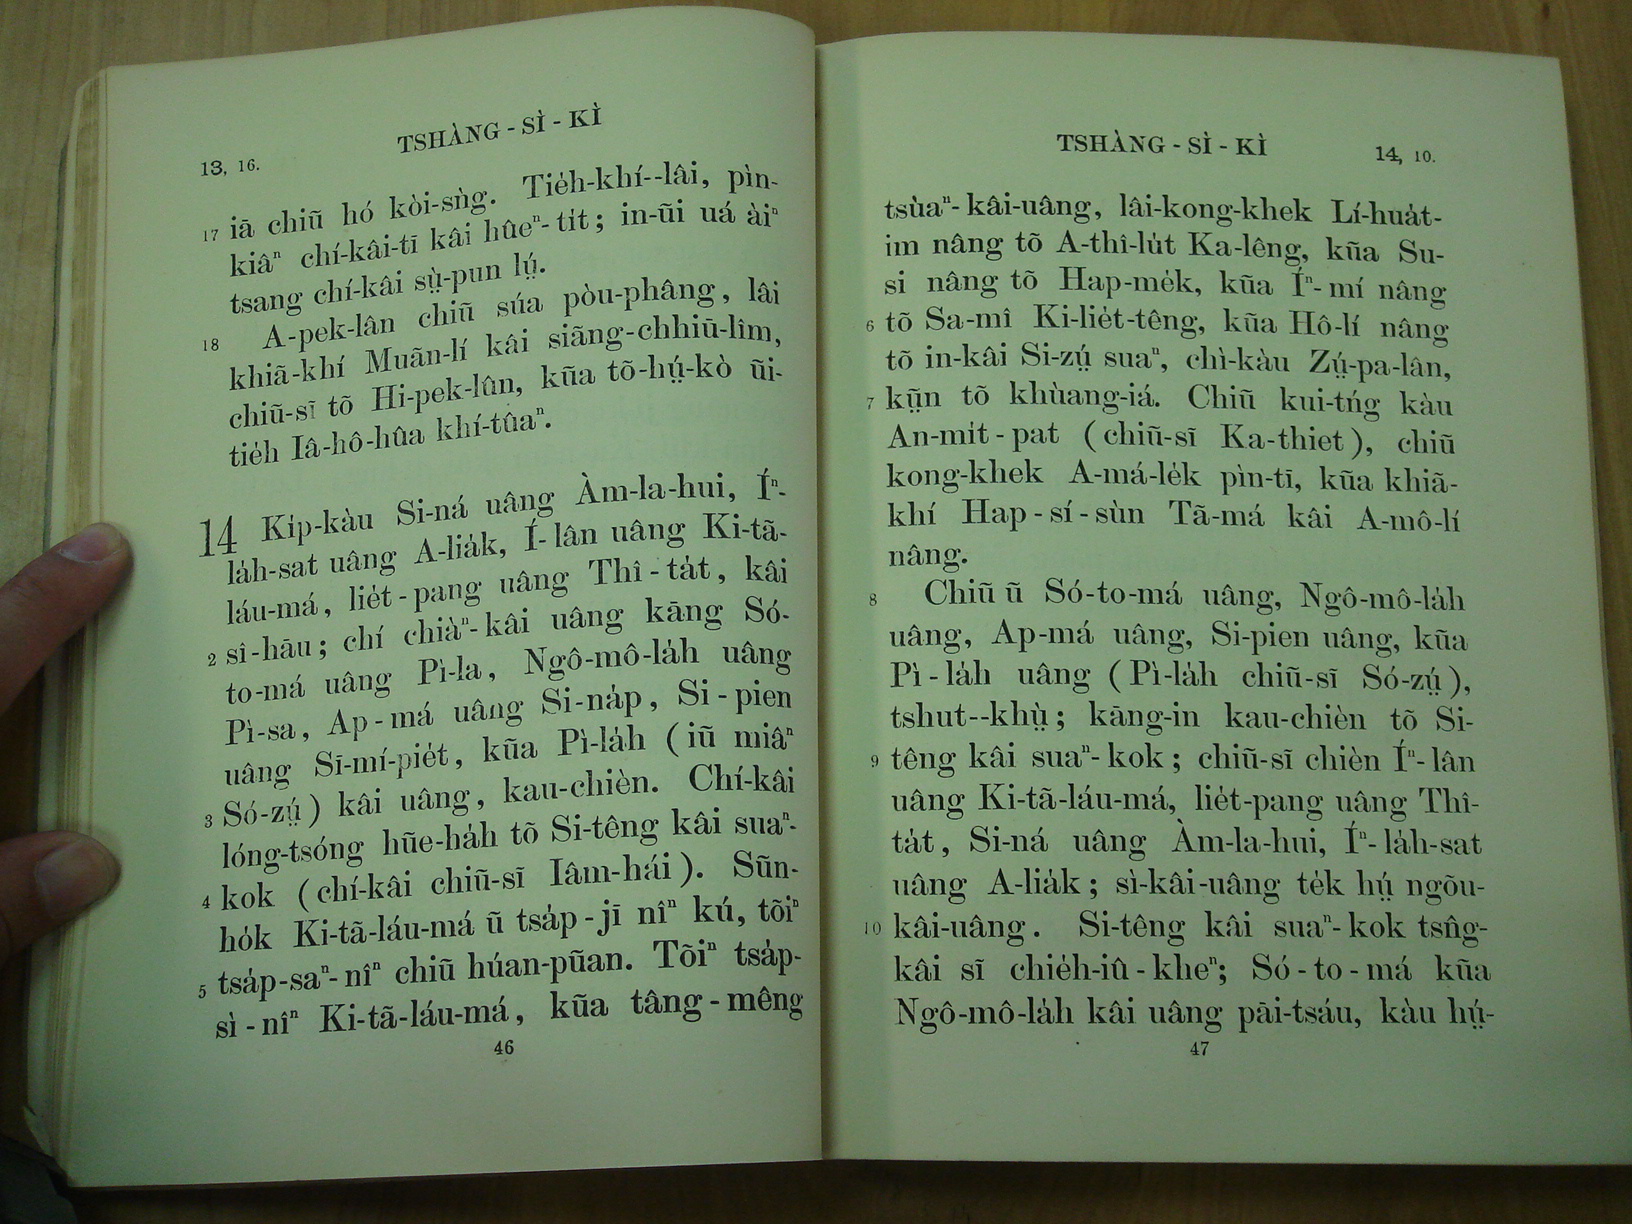 TSHÀNG - SÌ - KÌ
13, 16.
iā chiũ hó kòi-sǹg. Tie̍h-khí--lâi, pìn-
17 kiâⁿ chí-kâi-tī kâi hûeⁿ-ti̍t; in-ũi uá àiⁿ
tsang chí-kâi sṳ̀-pun lṳ́.
18 A-pek-lân chiũ súa pòu-phâng, lâi
khiã-khí Muãn-lí kâi siãng-chhiū-lîm,
chiũ-sĩ tõ Hi-pek-lûn, kũa tõ-hṳ́-kò ũi-
tie̍h Iâ-hô-hûa khí-tûaⁿ.
14 Ki̍p-kàu Si-ná uâng Àm-la-hui, Íⁿ-
la̍h-sat uâng A-lia̍k, Í-lân uâng Ki-tã-
láu-má, lie̍t-pang uâng Thî-ta̍t, kâi
2 sî-hāu; chí chiàⁿ-kâi uâng kāng Só-
to-má uâng Pì-la, Ngô-mô-la̍h uâng
Pì-sa, Ap-má uâng Si-na̍p, Si-pien
uâng Sĩ-mí-pie̍t, kũa Pì-la̍h (iũ miâⁿ
3 Só-zṳ́) kâi uâng, kau-chièn. Chí-kâi
lóng-tsóng hũe-ha̍h tõ Si-têng kâi suaⁿ-
4 kok (chí-kâi chiũ-sĩ Iâm-hái). Sũn-
ho̍k Ki-tã-láu-má ũ tsa̍p-jī nîⁿ kú, tõiⁿ
5 tsa̍p-saⁿ-nîⁿ chiũ húan-pũan. Tõiⁿ tsa̍p-
sì-nîⁿ Ki-tã-láu-má, kũa tâng-mêng
46
TSHÀNG - SÌ - KÌ
14, 10.
tsùaⁿ-kâi-uâng, lâi-kong-khek Lí-hua̍t-
im nâng tõ A-thî-lu̍t Ka-lêng, kũa Su-
si nâng tõ Hap-me̍k, kũa Íⁿ-mí nâng
6 tõ Sa-mî Ki-lie̍t-têng, kũa Hô-lí nâng
tõ in-kâi Si-zṳ́ suaⁿ, chì-kàu Zṳ́-pa-lân,
7 kṳ̃n tõ khùang-iá. Chiũ kui-tńg kàu
An-mi̍t-pat (chiũ-sĩ Ka-thiet), chiũ
kong-khek A-má-le̍k pìn-tī, kũa khiã-
khí Hap-sí-sùn Tã-má kâi A-mô-lí
nâng.
8 Chiũ ũ Só-to-má uâng, Ngô-mô-la̍h
uâng, Ap-má uâng, Si-pien uâng, kũa
Pì-la̍h uâng (Pì-la̍h chiũ-sĩ Só-zṳ́),
tshut--khṳ̀; kāng-in kau-chièn tõ Si-
9 têng kâi suaⁿ-kok; chiũ-sĩ chièn Íⁿ-lân
uâng Ki-tã-láu-má, lie̍t-pang uâng Thî-
ta̍t, Si-ná uâng Àm-la-hui, Íⁿ-la̍h-sat
uâng A-lia̍k; sì-kâi-uâng te̍k hṳ́ ngõu-
10 kâi-uâng. Si-têng kâi suaⁿ-kok tsn̂g-
kâi sĩ chie̍h-iû-kheⁿ; Só-to-má kũa
Ngô-mô-la̍h kâi uâng pāi-tsáu, kàu hṳ́-
47